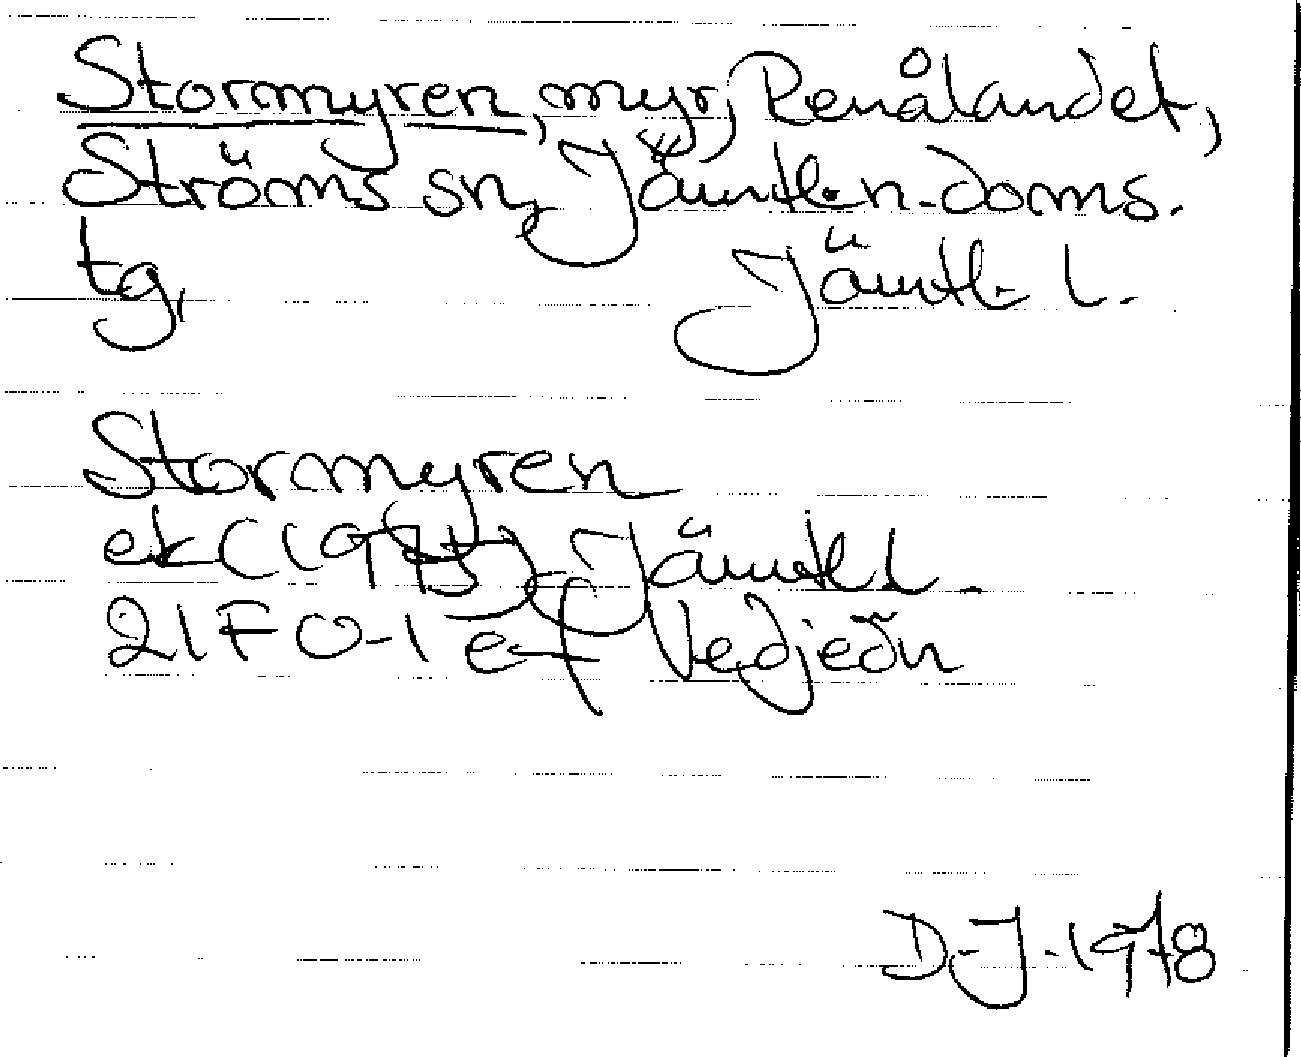 Stormyren, myr, Renålandet,
Ströms sn, Jämtl. n. doms.
tg, Jämtl. l.
Stormyren
ek (1975) Jämtl l.
21F 0-1 e-f Vedjeön
D.J. 1978